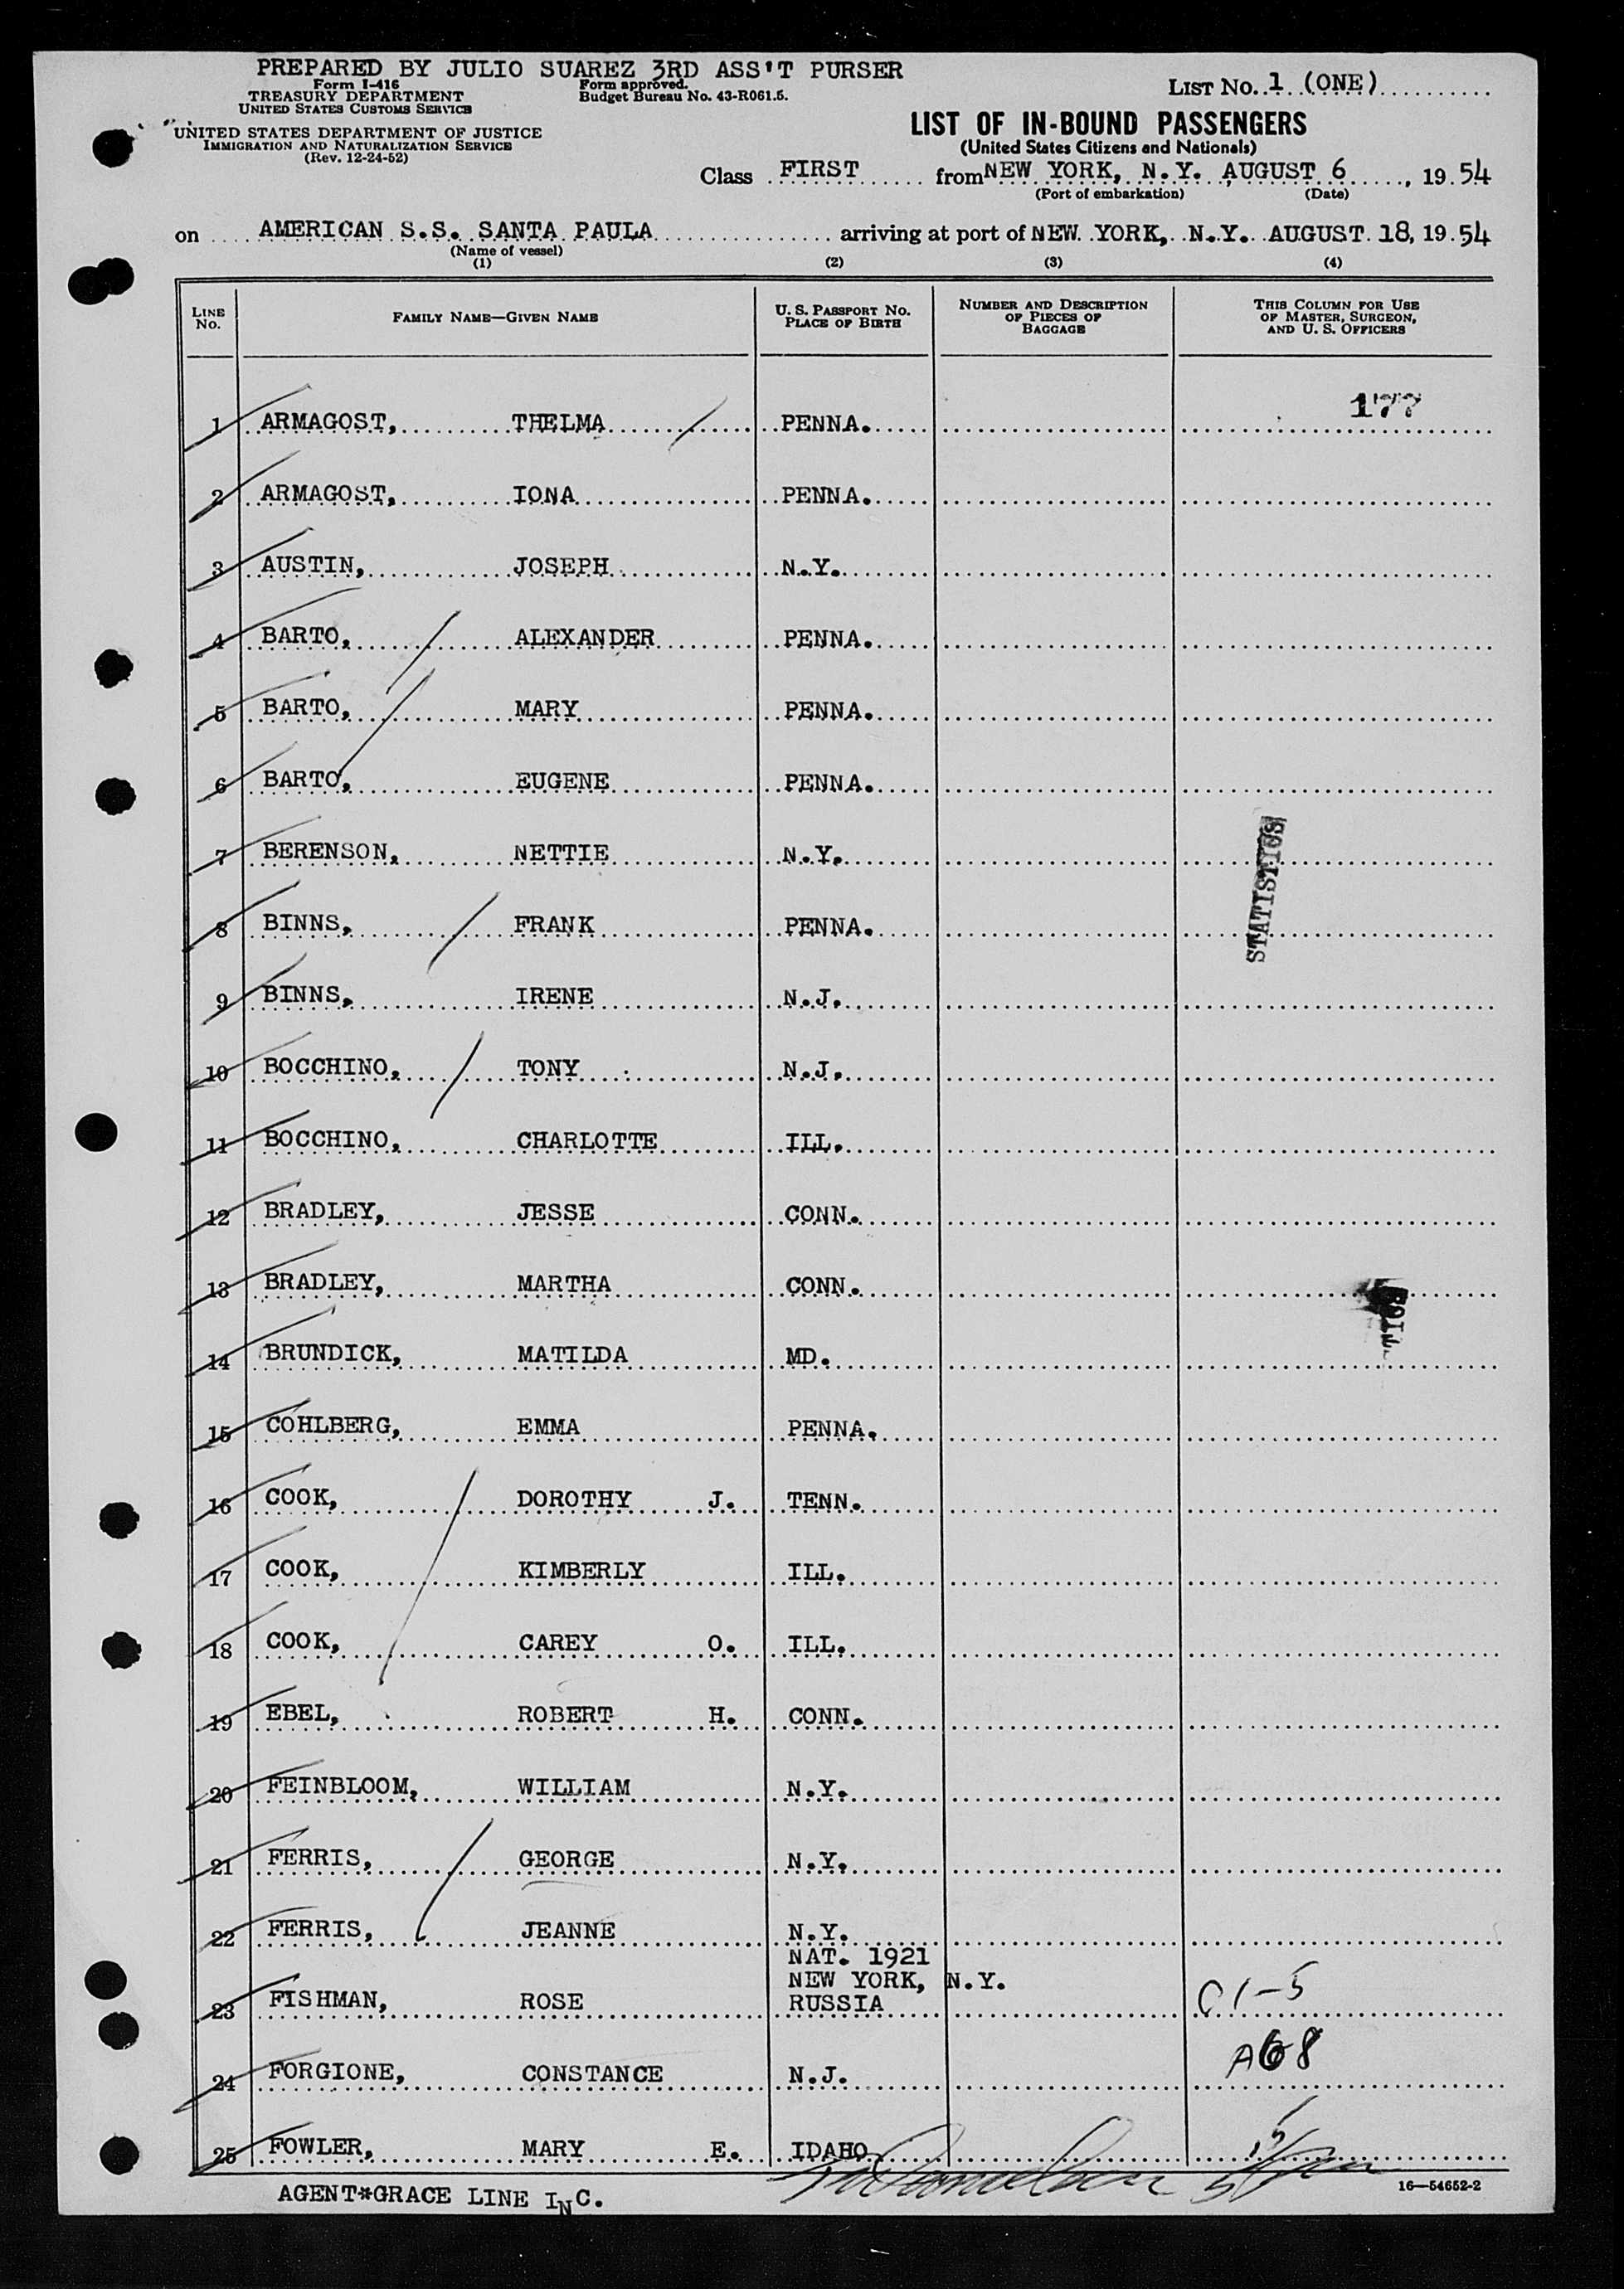 PREPARED BY JULIO SUAREZ 3RD ASS'T PURSER
Form I-416
TREASURY DEPARTMENT
UNITED STATES CUSTOMS SERVICE
Form approved.
Budget Bureau No. 43-R061.5.
LIST No. 1 (ONE)
UNITED STATES DEPARTMENT OF JUSTICE
IMMIGRATION AND NATURALIZATION SERVICE
(Rev. 12-24-52)
LIST OF IN-BOUND PASSENGERS
(United States Citizens and Nationals)
Class FIRST from NEW YORK, N.Y. AUGUST 6, 1954
(Port of embarkation) (Date)
on AMERICAN S.S. SANTA PAULA arriving at port of NEW YORK, N.Y. AUGUST 18, 1954
(Name of vessel)
(1) (2) (3) (4)
LINE No. FAMILY NAME—GIVEN NAME U. S. PASSPORT No. PLACE OF BIRTH NUMBER AND DESCRIPTION OF PIECES OF BAGGAGE THIS COLUMN FOR USE OF MASTER, SURGEON, AND U. S. OFFICERS
177
1 ARMAGOST, THELMA PENNA.
2 ARMAGOST, IONA PENNA.
3 AUSTIN, JOSEPH N.Y.
4 BARTO, ALEXANDER PENNA.
5 BARTO, MARY PENNA.
6 BARTO, EUGENE PENNA.
7 BERENSON, NETTIE N.Y.
STATISTICS
8 BINNS, FRANK PENNA.
9 BINNS, IRENE N.J.
10 BOCCHINO, TONY N.J.
11 BOCCHINO, CHARLOTTE ILL.
12 BRADLEY, JESSE CONN.
13 BRADLEY, MARTHA CONN.
14 BRUNDICK, MATILDA MD.
15 COHLBERG, EMMA PENNA.
16 COOK, DOROTHY J. TENN.
17 COOK, KIMBERLY ILL.
18 COOK, CAREY O. ILL.
19 EBEL, ROBERT H. CONN.
20 FEINBLOOM, WILLIAM N.Y.
21 FERRIS, GEORGE N.Y.
22 FERRIS, JEANNE N.Y.
NAT. 1921
NEW YORK, N.Y.
23 FISHMAN, ROSE RUSSIA C1-5
A68
24 FORGIONE, CONSTANCE N.J.
25 FOWLER, MARY E. IDAHO
AGENT*GRACE LINE INC.
16—54652-2